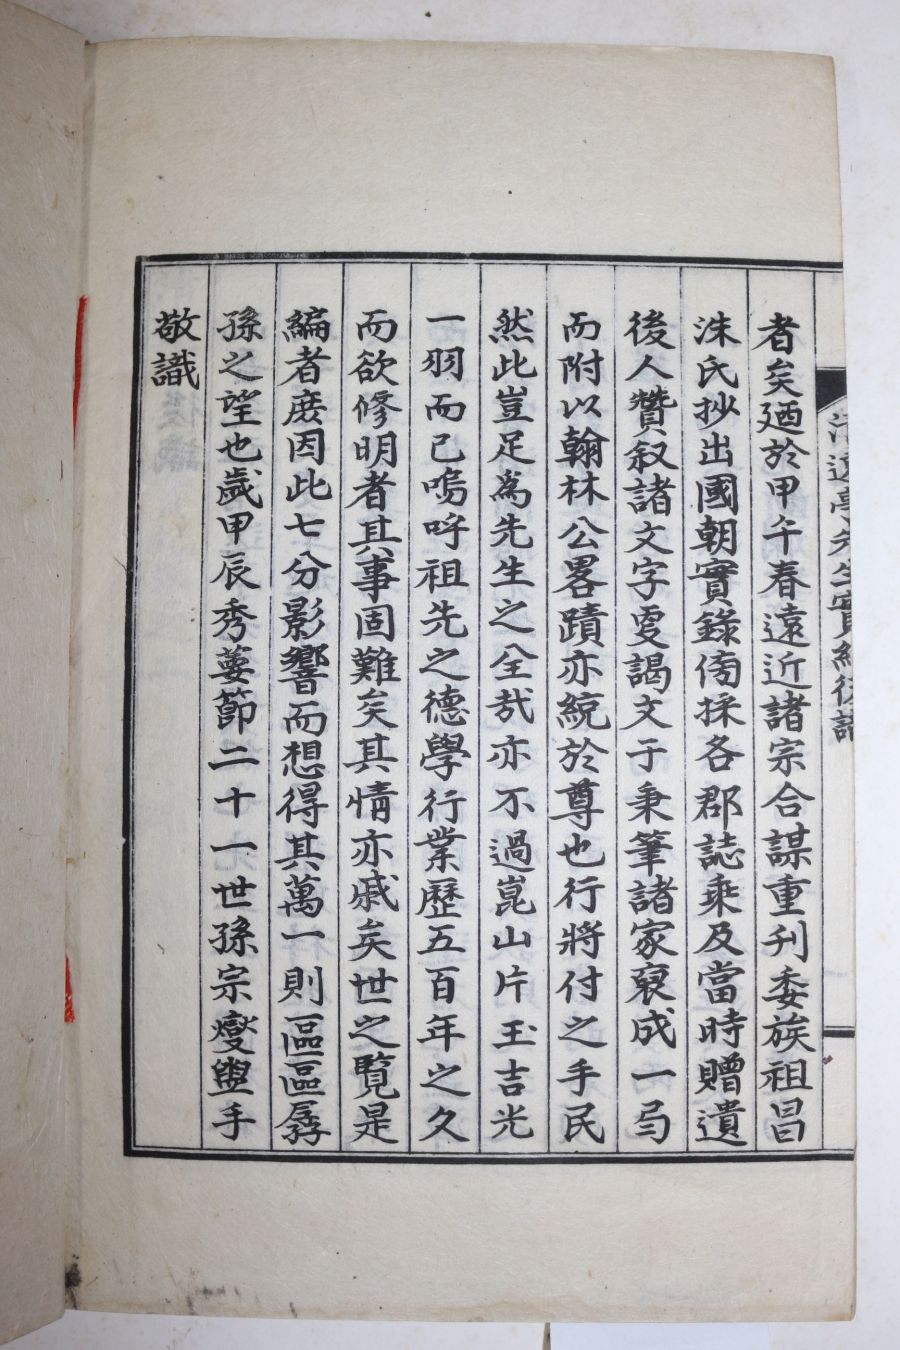 遠亭先生實紀後識
者矣廼於甲午春遠近諸宗合謀重刊委族祖昌
洙氏抄出國朝實錄傍採各郡誌乘及當時贈遺
後人贊叙諸文字更謁文于秉筆諸家裒成一局
而附以翰林公畧蹟亦統於尊也行將付之手民
然此豈足爲先生之全哉亦不過崑山片玉吉光
一羽而已嗚呼祖先之德學行業歷五百年之久
而欲修明者其事固難矣其情亦戚矣世之覽是
編者庶因此七分影響而想得其萬一則區區孱
孫之望也歲甲辰秀葽節二十一世孫宗燮盥手
敬識